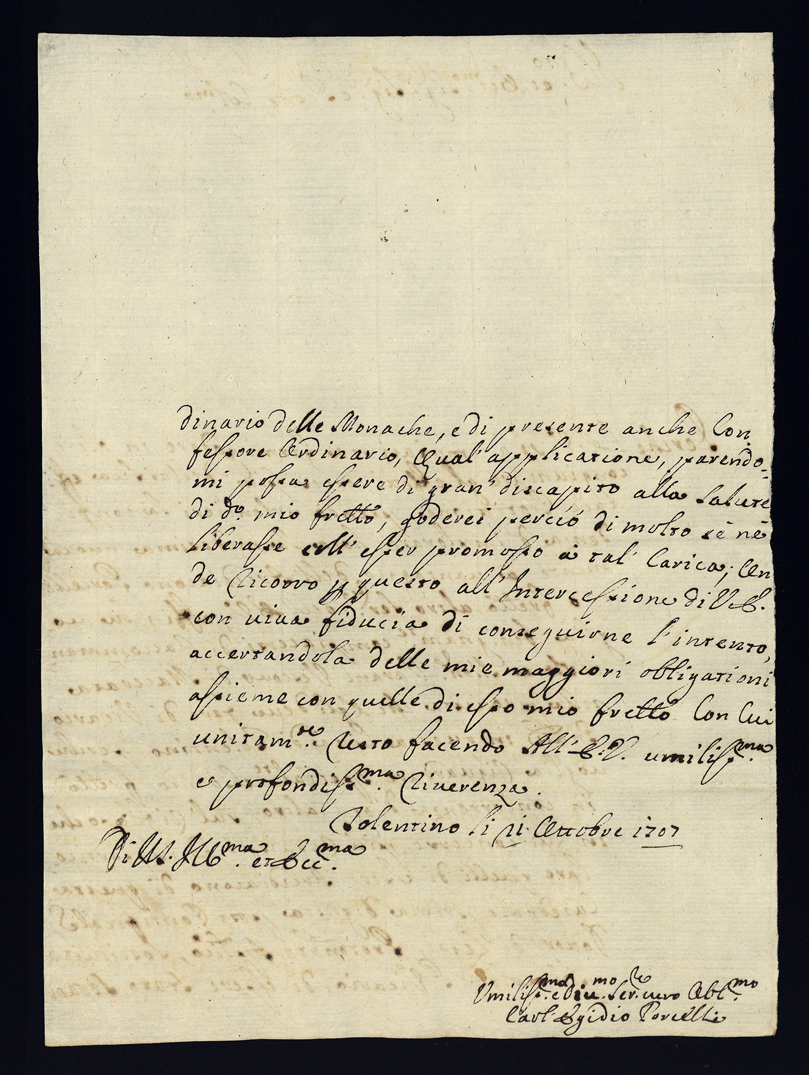 dinario delle Monache, e di presente anche Con
fessore Ordinario, Qual'applicatione, parendo=
mi possa essere di gran' discapito alla Salute
di do. mio frello, goderei perciò di molto sè nè
liberasse coll'esser promosso à tal' Carica; On
de Ricorro p questo all'Intercessione di V.E.
con viva fiducia di conseguirne l'intento,
accertandola delle mie maggiori obligationi
assieme con quelle di esso mio frello Con Cui
unitamte. resto facendo All'E.V. umilissma.
e profondissma. Riverenza.
Tolentino li 21 Ottobre 1707
Di V. Illma. et Eccma.
Umilissmo. e Divmo. Serre. vero Oblmo.
Carl'Egidio Porcelli